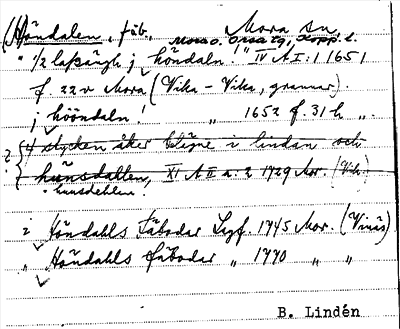 (Höndalen, fäb. Mora sn
Mora o. Orsa tg, Kopp. l.
" 1/2 laßängh j höndaln!" IV A I:1 1651
f. 22 v Mora (Vika - Vika, grannar).
j hööndaln! " 1652 f. 31 h ".
? { 4 stycken åker belägne i lindan och
hunsdallen, XI A II a:2 1729 Mor. (Vik.)
hunsdehlen.
i Höndahls Fäbodar Lgf. 1745 Mor. (Vinäs)
" Höndahls fäbodar " 1770 " "
B. Lindén